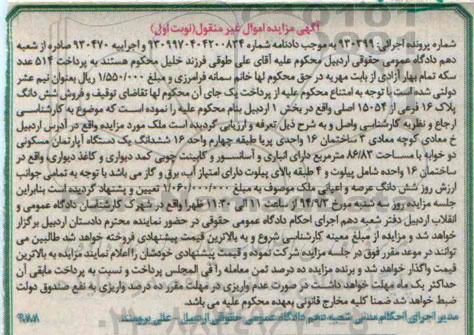 آگهی مزایده اموال غیر منقول(نوبت اول)
شماره پرونده اجرائی: ۹۳۰۳۹۹ به موجب دادنامه شماره ۹۳۰۹۹۷۰۴۰۴۲۰۰۸۳۴ و اجراییه ۹۳۰۴۷۰ صادره از شعبه
دهم دادگاه عمومی حقوقی اردبیل محکوم علیه آقای علی طوقی فرزند خلیل محکوم هستند به پرداخت ۵۱۴ عدد
سکه تمام بهار آزادی از بابت مهریه در حق محکوم لها خانم سمانه فرامرزی و مبلغ ۱/۵۵۰/۰۰۰ ریال بعنوان نیم عشر
دولتی شده است با توجه به امتناع محکوم علیه از پرداخت یک جای آن محکوم لها تقاضای توقیف و فروش شش دانگ
پلاک ۱۶ فرعی از ۱۵۰۵۴ اصلی واقع در بخش ۱ اردبیل بنام محکوم علیه را نموده است که موضوع به کارشناسی
ارجاع و نظریه کارشناسی واصل و به شرح ذیل تعرفه و ارزیابی گردیده است ملک مورد مزایده واقع در آدرس اردبیل
خ معادی کوچه معادی ۳ ساختمان ۱۶ واحدی پریا طبقه چهارم واحد ۱۶ ششدانگ یک دستگاه آپارتمان مسکونی
دو خوابه با مساحت ۸۶/۸۳ مترمربع دارای انباری و آسانسور و کابینت چوبی کمد دیواری و کاغذ دیواری واقع در
ساختمان ۱۶ واحده شامل پیلوت و ۴ طبقه بالای پیلوت دارای امتیاز آب، برق و گاز می باشد با توجه به تمامی جوانب
ارزش روز شش دانگ عرصه و اعیانی ملک موصوف به مبلغ ۱/۰۶۰/۰۰۰/۰۰۰ تعیین و پیشنهاد گردیده است بنابراین
جلسه مزایده روز سه شنبه مورخ ۹۴/۹/۳ از ساعت ۱۱ الی ۱۱:۳۰ ظهر واقع در شهرک کارشناسان دادگاه عمومی و
انقلاب اردبیل دفتر شعبه دهم اجرای احکام دادگاه عمومی حقوقی در حضور نماینده محترم دادستان اردبیل برگزار
خواهد شد و مزایده از مبلغ معینه کارشناسی شروع و به بالاترین قیمت پیشنهادی فروخته خواهد شد، طالبین می
توانند در موعد مقرر فوق در جلسه مزایده شرکت نموده و قیمت پیشنهادی خودشان را اعلام نمایند مزایده به بالاترین
قیمت واگذار خواهد شد و برنده مزایده ده درصد ثمن معامله را فی المجلس پرداخت و نسبت به پرداخت مابقی آن
حداکثر یک ماه مهلت خواهد داشت در صورت عدم واریزی در مهلت مقرر ده درصد واریزی به نفع صندوق دولت
ضبط خواهد شد ضمنا کلیه مخارج قانونی بعهده محکوم علیه می باشد.
مدیر اجرای احکام مدنی شعبه دهم دادگاه عمومی حقوقی اردبیل - علی برومند